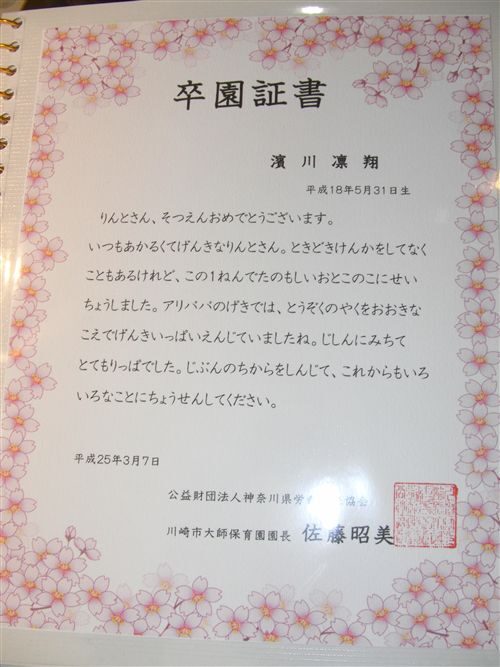 卒園証書
濱川凛翔
平成18年5月31日生
りんとさん、そつえんおめでとうございます。
いつもあかるくてげんきなりんとさん。ときどきけんかをしてなく
こともあるけれど、この1ねんでたのもしいおとこのこにせい
ちょうしました。アリババのげきでは、とうぞくのやくをおおきな
こえでげんきいっぱいえんじていましたね。じしんにみちて
とてもりっぱでした。じぶんのちからをしんじて、これからもいろ
いろなことにちょうせんしてください。
平成25年3月7日
公益財団法人神奈川県労 協会
川崎市大師保育園園長 佐藤昭美